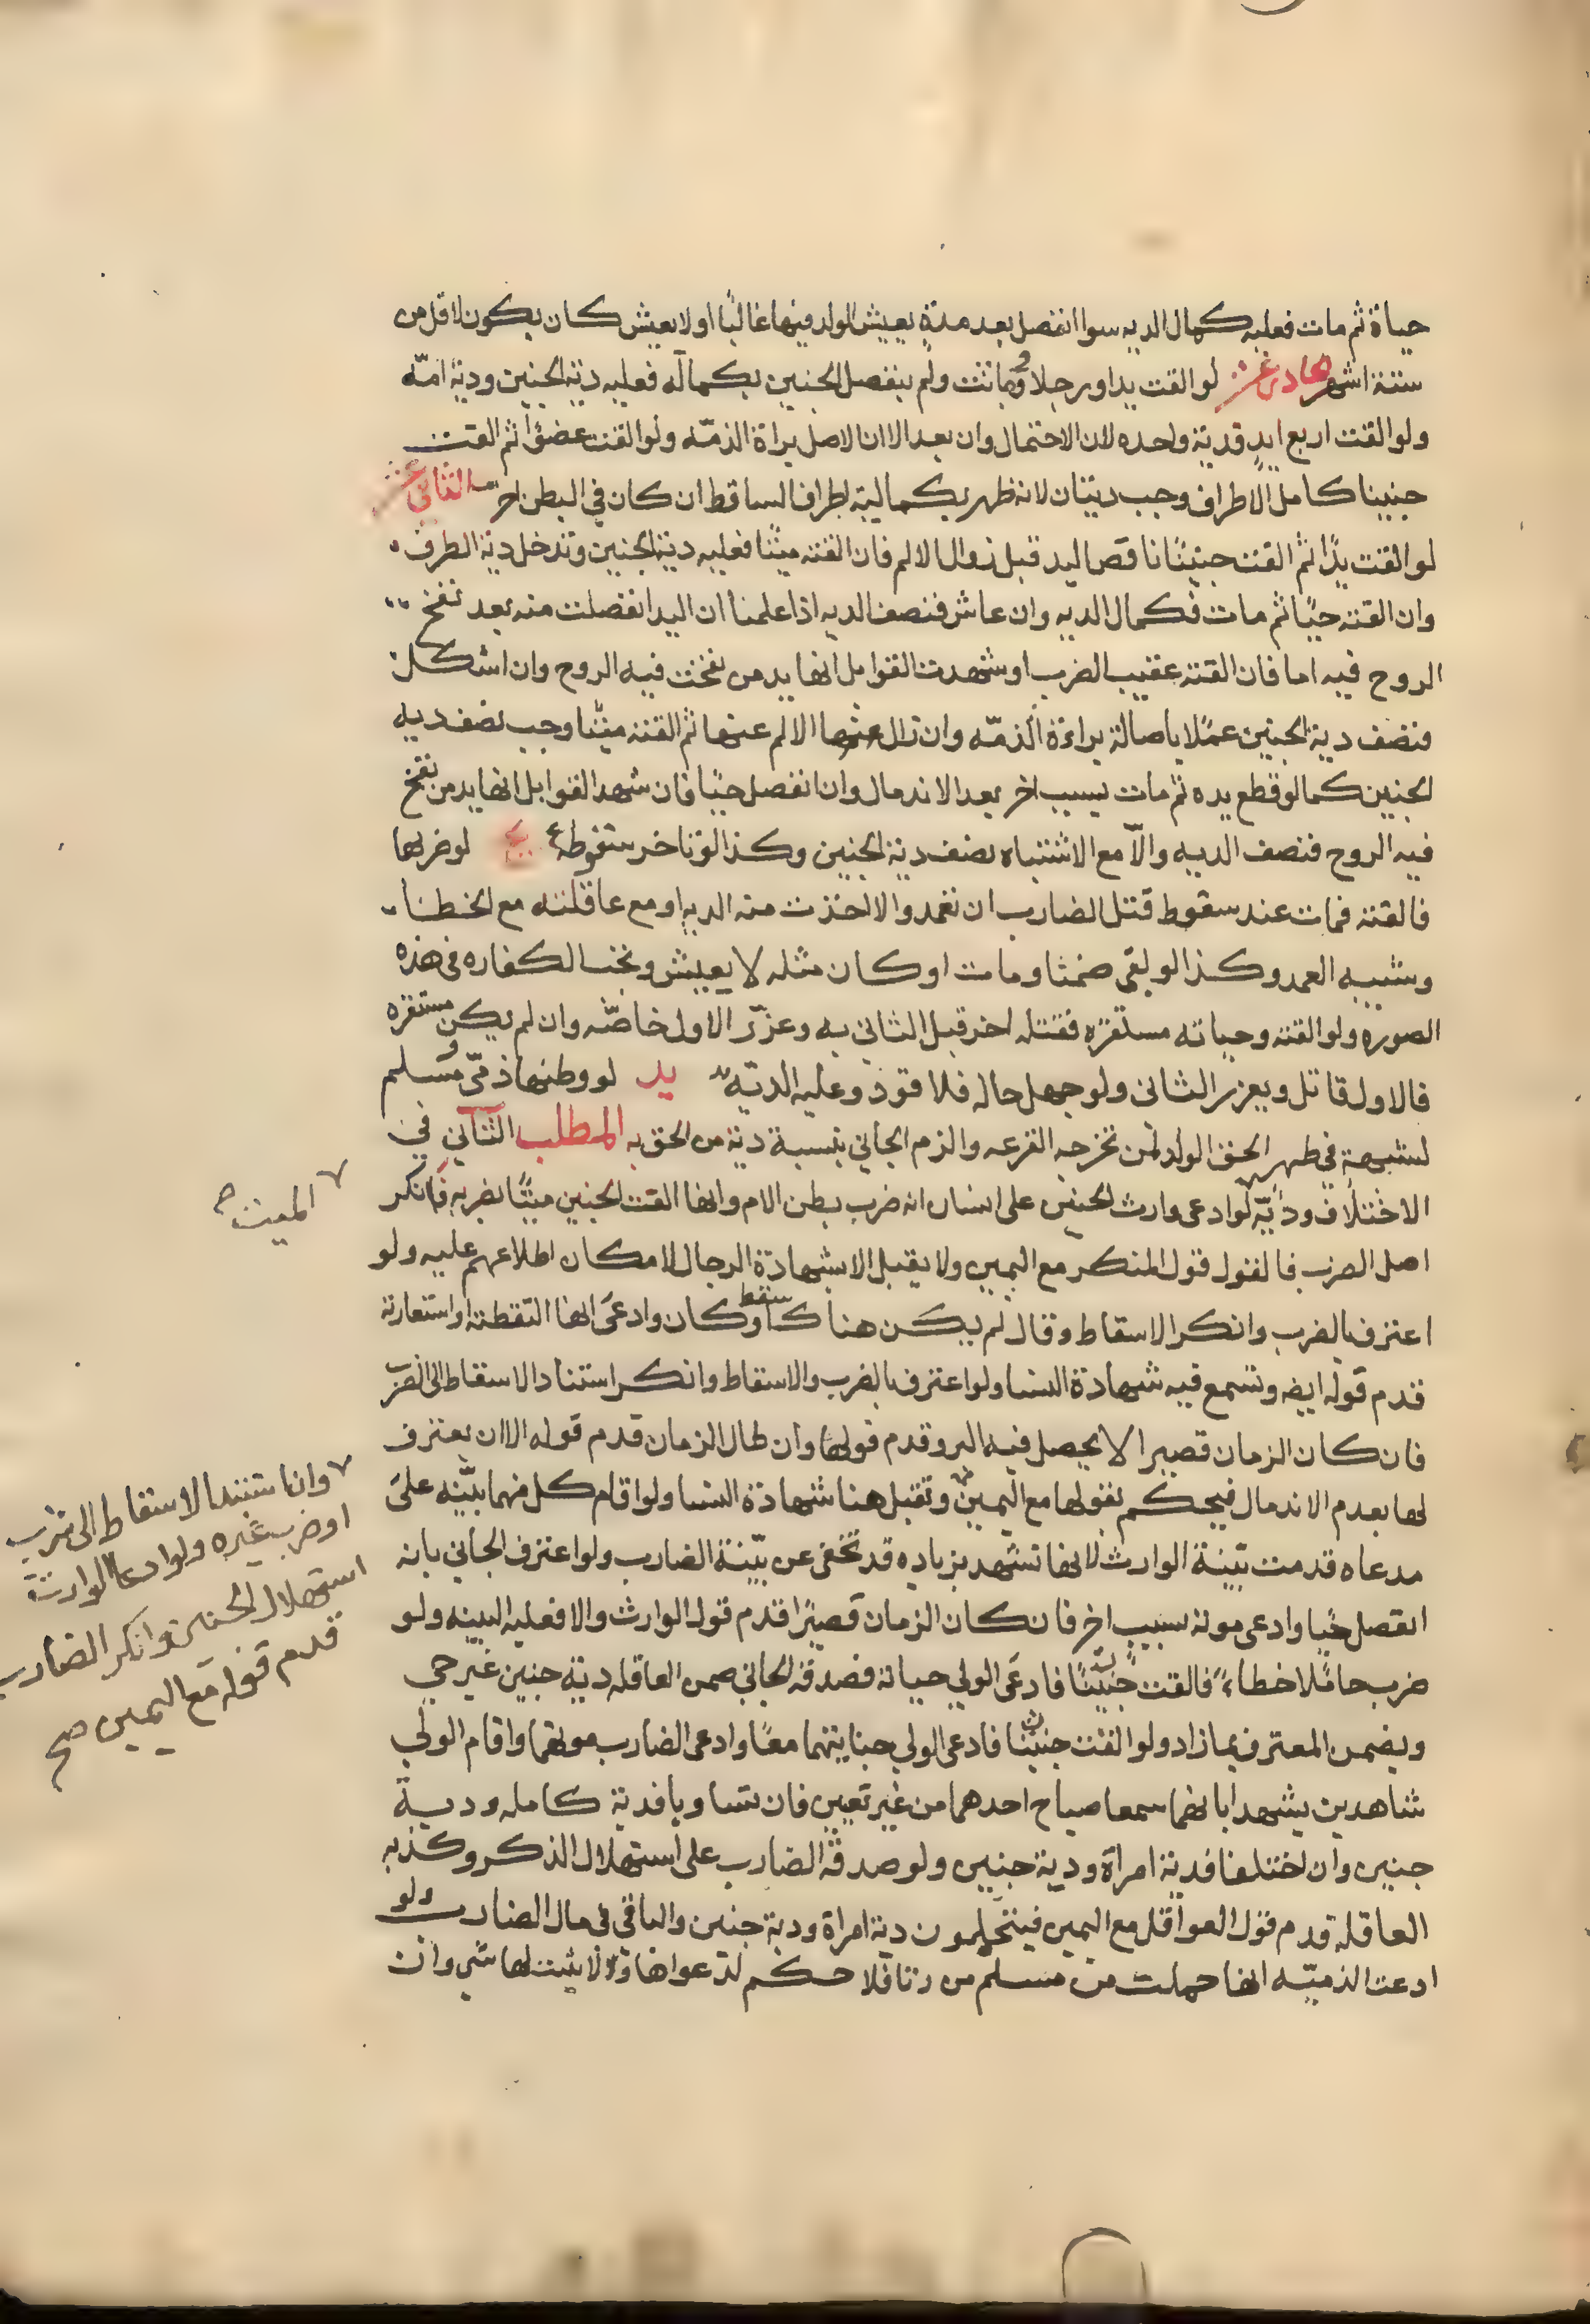 حياة ثم مات فعليه كمال الديه سوا انفصل بعد مدة يعيش الولد فيها غالبًا او لا يعيش كان يكون لاقل من
ستة اشهر الحادى عشر لو القت يدا ورجلا وماتت ولم ينفصل الجنين بكماله فعليه دية الجنين ودية امّه
ولو القت اربع ايدٍ فدية واحده لان الاحتمال وان بعد الا ان الاصل براة الذمّه ولو القت عضوًا ثم القت
جنينا كامل الاطراف وجب ديتان لانه ظهر بكمالية اطراف الساقط ان كان في البطن اخر الثانى عشر
لو القت يدًا ثم القت جنينًا ناقص اليد قبل زوال الالم فان القته ميتًا فعليه دية الجنين وتدخل دية الطرف
وان القته حيًا ثم مات فكمال الديه وان عاش فنصف الديه اذا علمنا ان اليد انفصلت منه بعد نفخ
الروح فيه اما فان القته عقيب الضرب او شهدت القوابل انها يد من نفخت فيه الروح وان اشكل
فنصف دية الجنين عملًا باصالة براءة الذمّه وان زال عنها الالم عنها ثم القته ميتًا وجب نصف ديه
الجنين كما لو قطع يده ثم مات بسبب اخر بعد الاندمال وان انفصل حيًا فان شهد القوابل انها يد من نفخ
فيه الروح فنصف الديه والّا مع الاشتباه نصف دية الجنين وكذا لو تاخر سقوطه يج لو ضربها
فالقته فمات عند سقوط قتل الضارب ان تعمد والا اخذت منه الديه او مع عاقلته مع الخطا
وشبيه العمد وكذا لو بقى ضمنا ومات او كان مثله لا يعيش وتجب الكفاره في هذه
الصوره ولو القته وحياته مستقره فقتله اخر قبل الثانى به وعزّر الاول خاصّه وان لم يكن مستقره
فالاول قاتل ويعزر الثانى ولو جهل حاله فلا قود وعليه الديّه يد لو وطئها ذمّى ومسلم
لشبهة في طهر الحق الولد لمن تخرجه القرعه والزم الجاني بنسبة دية من الحق به المطلب الثانى في
الاختلاف وديّه لو ادعى وارث الجنين على انسان انه ضرب بطن الام وانها القت الجنين ميتًا بضربه فانكر
اصل الضرب فالقول قول المنكر مع اليمين ولا يقبل الا شهادة الرجال لامكان اطلاعهم عليه ولو
اعترف بالضرب وانكر الاسقاط وقال لم يكن هناك سقط او كان وادعى انها التقطته او استعارته
قدم قوله ايضه وتسمع فيه شهادة النسا ولو اعترف بالضرب والاسقاط وانكر استناد الاسقاط الى الضرب
فان كان الزمان قصيرا لا يحصل فيه البرو قدم قولها وان طال الزمان قدم قوله الا ان يعترف
لها بعدم الاندمال فيحكم بقولها مع اليمين وتقبل هنا شهادة النسا ولو اقام كل منهما بيّنه على
مدعاه قدمت بيّنة الوارث لانها تشهد بزياده قد تخفى عن بيّنة الضارب ولو اعترف الجاني بانه
انفصل حيا وادعى موته بسبب اخر فان كان الزمان قصيرًا قدم قول الوارث والا فعليه البينه ولو
ضرب حاملًا خطاءً فالقت جنينًا فادعى الولي حياته فصدقه الجاني ضمن العاقله دية جنين غير حي
ويضمن المعترف بما زاد ولو القت جنينين فادعى الولي جنايتهما معًا وادعى الضارب موتهما واقام الولي
شاهدين يشهدا بانهما سمعا صياح احدهما من غير تعيين فان تساويا فدية كامله ودية
جنين وان اختلفا فدية امراة ودية جنين ولو صدقه الضارب على استهلال الذكر وكذبه
العاقله قدم قول العواقل مع اليمين فيتحملون دية امراة ودية جنين والباقى في مال الضارب ولو
ادعت الذميّه انها حملت من مسلم من زنا فلا حكم لدعواها ولا يثبت لها شي وان
الميت صح
وان استند الاسقاط الى شرب
او ضرب غيره ولو ادعا الوارث
استهلال الجنين وانكر الضارب
قدم قوله مع اليمين صح